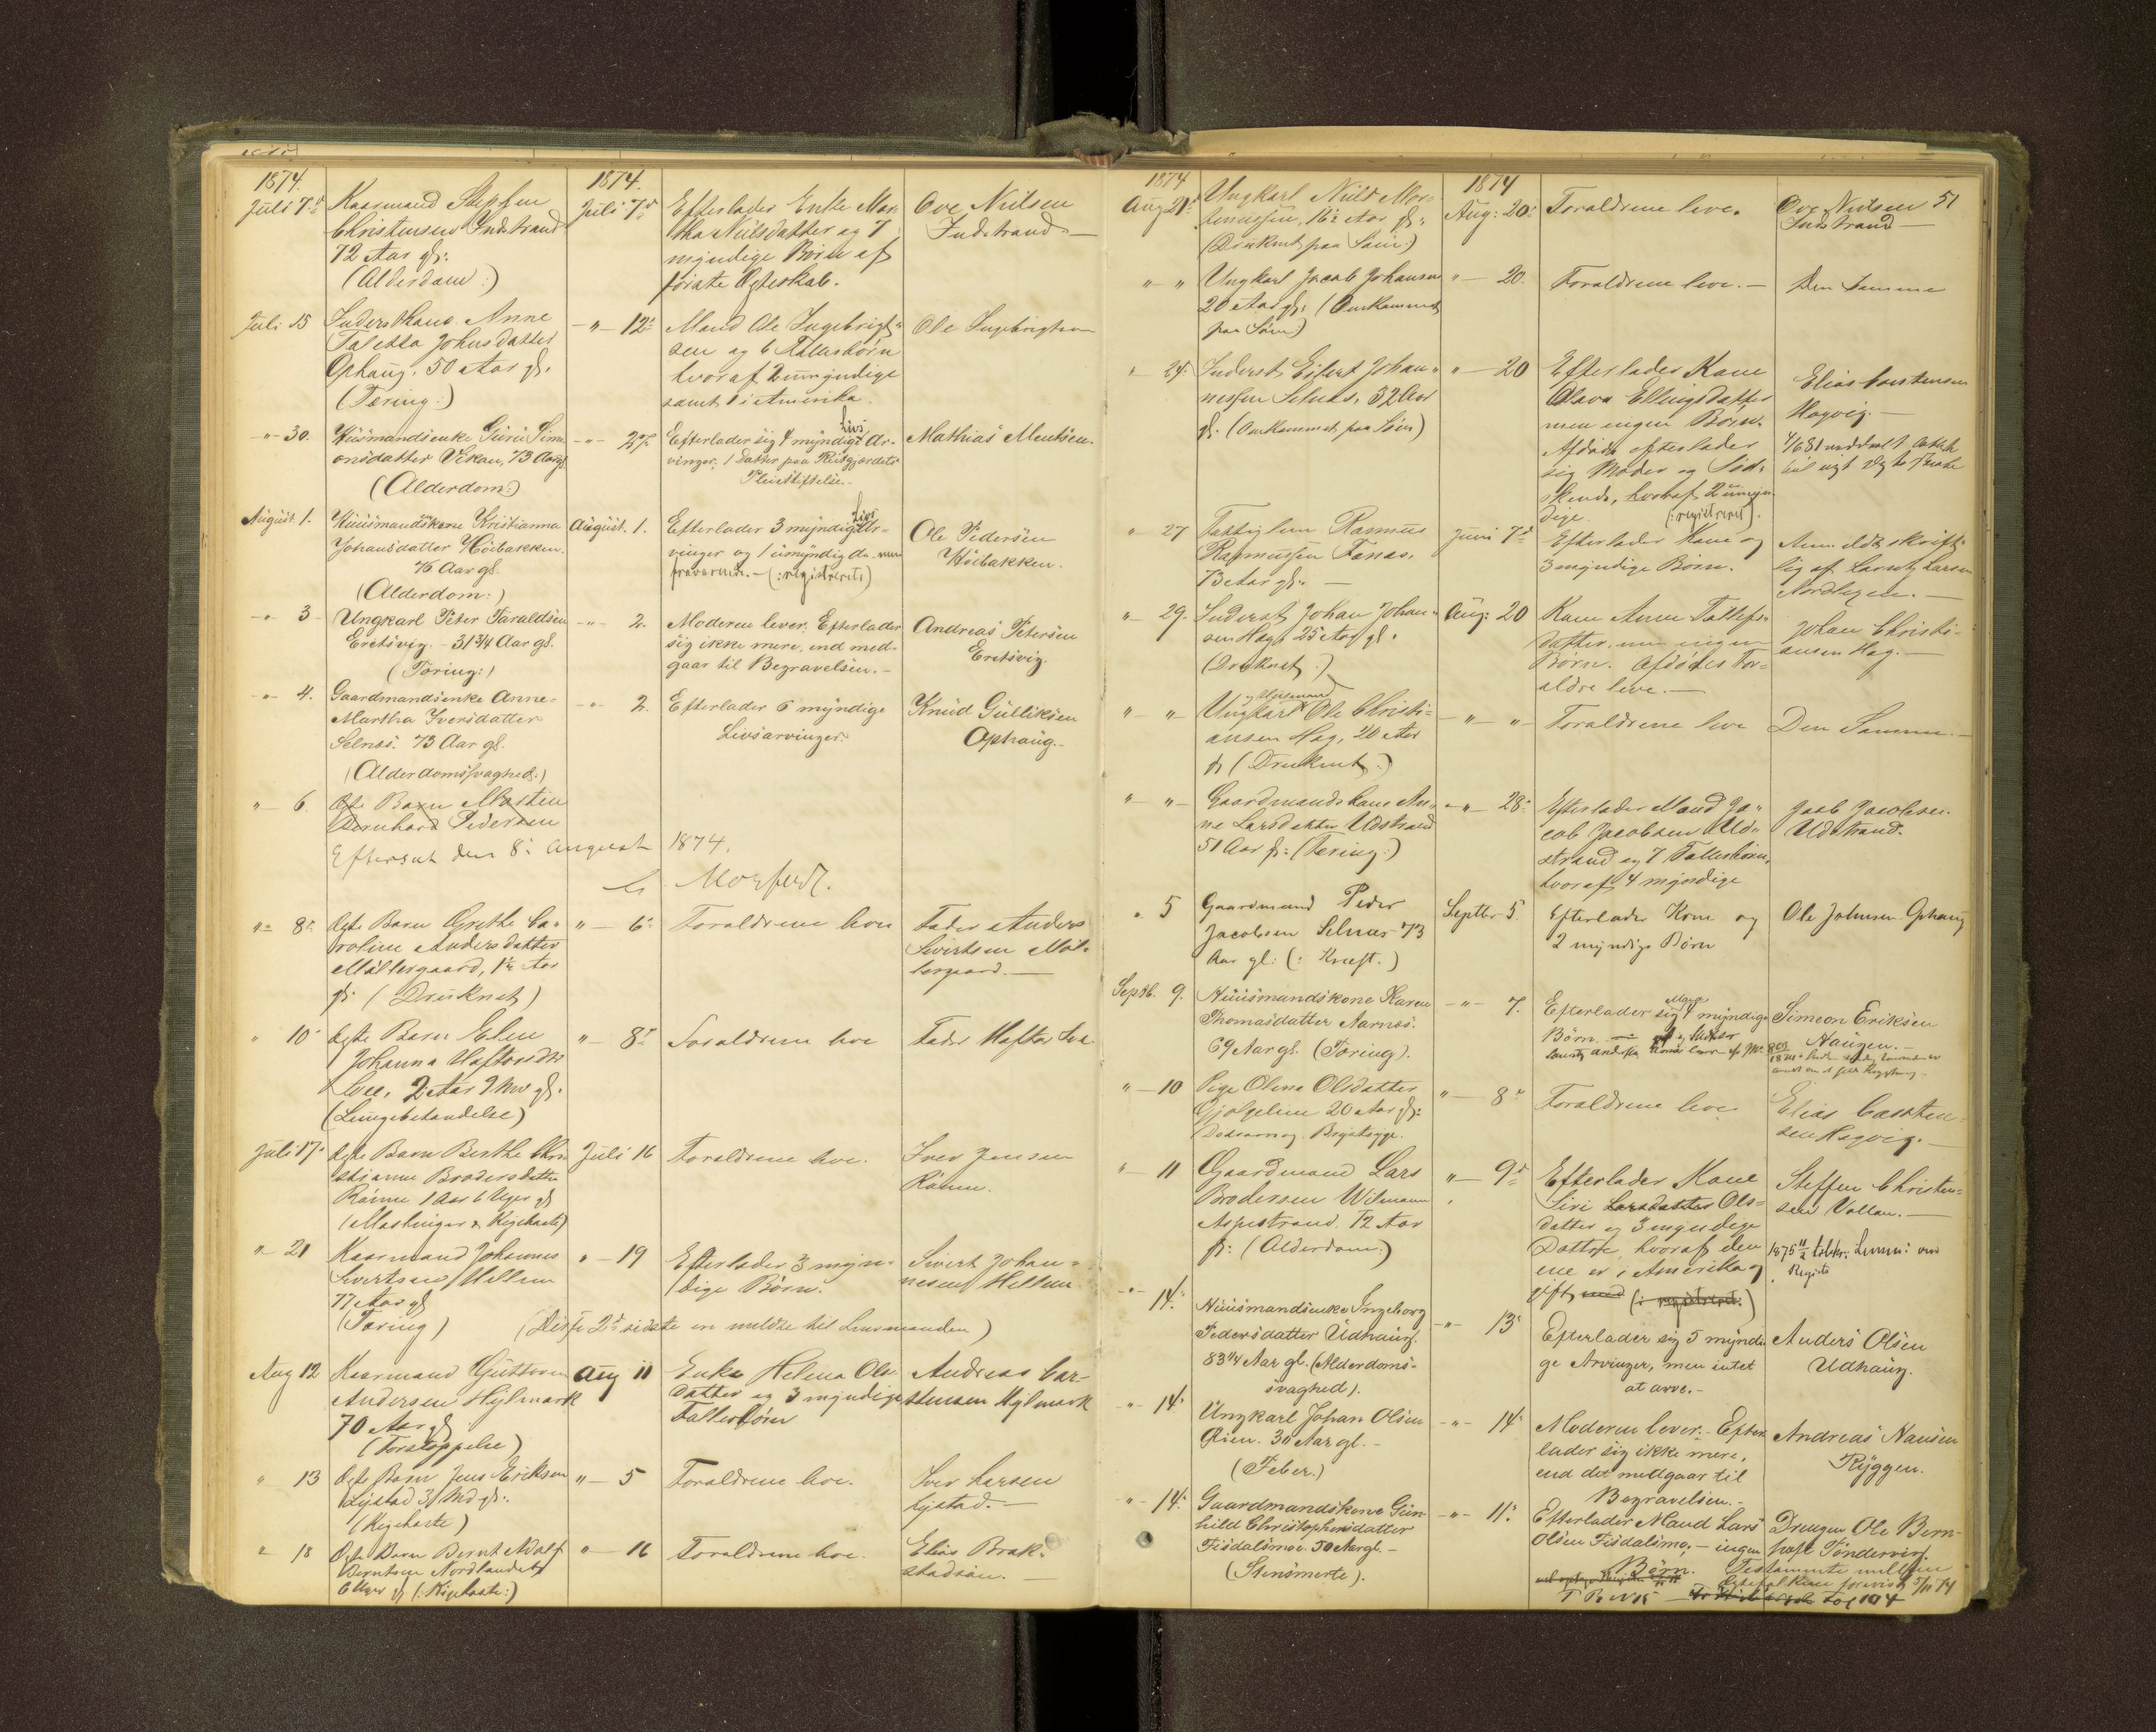 1874.
Juli 7de
Kaarmand Steffen
Christensen Indstrand
72 Aar gl:
(Alderdom:)
1874.
Juli 7de
Efterlader Enke Mar-
tha Nielsdatter og 7
myndige Børn af
første Ægteskab.
Ove Nielsen
Indstrand
Juli 15
Inderstkone Anne
Johnsdatter
Ophaug. 50 Aar gl.
(Tæring:)
-"- 12te
Mand Ole Ingebrigt-
sen og 6 Fællesbørn
hvoraf 2 umyndige
samt 1 i Amerika.
Ole Ingebrigtsen
-"- 30.
Huusmandsenke Guru Sim-
onsdatter Vikan, 73 Aar gl.
(Alderdom:)
-"- 27.
Efterlader sig 4 myndige Livs Ar-
vinger, 1 Datter paa Reitgjerdets
Pleiestiftelse.
Mathias Mentsen.
August. 1.
Huusmandskone Kristianna
Johansdatter Høibakken.
76 Aar gl.
(Alderdom:)
August. 1.
Efterlader 3 myndige Livs Ar-
vinger og 1 umyndig do.
fraværende. - (:registreret:)
Ole Pedersen
Høibakken.
-"- 3
Ungkarl Peter Taraldsen
Eretsvig. - 31 3/4 Aar gl.
(Tæring:)
-"- 2.
Moderen lever. Efterlader
sig ikke mere, end med-
gaar til Begravelsen. -
Andreas Petersen
Eretsvig.
-"- 4.
Gaardmandsenke Anne-
Martha Iversdatter
Selnæs. 73 Aar gl.
(Alderdomssvaghed:)
-"- 2.
Efterlader 6 myndige
Livsarvinger.
Knud Gulliksen
Ophaug.-
" - 6.
Ægte Barn Martin
Bernhard Pedersen
Efterset den 8de August 1874.
"- 8de
Ægte Barn Grethe Ca-
roline Andersdatter
Møllergaard, 1½ Aar
gl: (Druknet)
" - 6te
Forældrene leve
Fader Anders
Sivertsen Møl-
lergaard. -
" 10de
Ægte Barn Elen
Johanna Haftorsdtr
2 Aar 9 Mdr gl.
(Lungebetændelse)
" - 8de
Forældrene leve
Fader Haftor
Juli 17.
Ægte Barn Berthe Chri-
stianne Brodersdatter
Rønne 1 Aar 6 Uger gl
(Mæslinger & Kighoste)
Juli 16
Forældrene leve.
Iver Jensen
Rønne.
"- 21
Kaarmand Johannes
Sivertsen Hellem
77 Aar gl
(Tæring)
" - 19
Efterlader 3 myn-
dige Børn.
Sivert Johan-
nesen Hellem
(Disse 2de sidste en meldte til Lensmanden)
Aug 12
Kaarmand Guttorm
Andersen Hylmark
70 Aar gl
(Forstoppelse)
Aug 11
Enke Helena Ols-
datter og 3 myndige
Fællesbørn
Andreas Car-
stensen Hylmark
" 13
Ægte Barn Jens Eriksen
Lystad 3 Md gl:
(Kighoste)
" - 5
Forældrene leve.
Iver Larsen
Lystad. -
" 18
Ægte Barn Bernt Adolf
Berntsen Nordlandet
6 Uger gl (Kighoste:)
" - 16
Forældrene leve.
Elias Brak-
stadsøen. -
1874
Aug 21de
Ungkarl Niels Mor-
tenussen, 16½ Aar gl:
(Druknet paa Søen:)
1874
Aug: 20de
Forældrene leve.
Ove Nielsen 51
Indstrand -
" "
Ungkarl Jacob Johansen
20 Aar gl: (Omkommet
paa Søen)
" - 20.
Forældrene leve. -
Den Samme
" 25.
Inderst Eilert Johan-
nessen Selnæs, 32 Aar
gl: (Omkommet paa Søen)
" - 20
Efterlader Kone
Olava Ellingsdatter
men ingen Børn.
Afdøde efterlader
sig Moder og Sød-
skende, hvoraf 2 umyn-
dige. (:registreret).
Elias Carstensen
Hogvig. -
" 27
Fattiglem Rasmus
Rasmussen Fanæs.
73 Aar gl: -
Juni 7de
Efterlader Kone og
3 myndige Børn.
Anmeldt skrift-
lig af Lorentz Larsen
" 29.
Inderst Johan Johan-
sen Hagt 25 Aar gl.
(Druknet.)
Aug: 20
Kone Anne
datter, men ingen
Børn. Afdødes For-
ældre leve. -
Johan Christi-
ansen Hag. -
" "
Ungkarl Ole Christi-
ansen Hag, 20 Aar
gl (Druknet.)
- " - " -
Forældrene leve
Den Samme. -
" " -
Gaardmandskone An-
ne Larsdatter Udstrand
51 Aar gl: (Tæring.)
- " - 28de
Efterlader Mand Ja-
cob Jacobsen Ud-
strand og 7 Fællesbørn,
hvoraf 4 myndige
Jacob Jacobsen
Udstrand.
" 5
Gaardmand Peder
Jacobsen Selnæs 73
Aar gl: (: Kræft.)
Septbr 5.
Efterlader Kone og
2 myndige Børn
Ole Johnsen Ophaug
Septb. 9.
Huusmandskone Karen
Thomasdatter Aarnæs.
69 Aar gl. (Tæring).
- " - 7.
Efterlader sig Mand 4 myndige
Børn.
Simeon Eriksen
Nausen. -
" - 10
Pige Olena Olsdatter
Gjølgelien 20 Aar gl:
Brystsyge.
" - 8de
Forældrene leve
Elias Carsten-
sen Hogvig. -
" - 11
Gaardmand Lars
Brodersen Wilmann
Aspestrand. 72 Aar
gl: (Alderdom:)
" - 9de
Efterlader Kone
Siri Larsdatter Ols-
datter og 3 myndige
Døttre, hvoraf den
ene er i Amerika og
gift med (: registreret:)
Steffen Christen-
sen Vollan. -
-"- 14.
Huusmandsenke Ingeborg
Pedersdatter Udhaug.
83 1/4 Aar gl. (Alderdoms-
svaghed).
-"- 13
Efterlader sig 5 myndi-
ge Arvinger, men intet
at arve. -
Anders Olsen
Udhaug.
-"- 14.
Ungkarl Johan Olsen
Øien. 30 Aar gl. -
(Feber.)
-"- 14.
Moderen lever. - Efter-
lader sig ikke mere,
end det medgaar til
Begravelsen. -
Andreas Nausen
Ryggen.
-"- 14.
Gaardmandskone Gun-
hild Christophersdatter
Fisdalsmo. 50 Aar gl. -
(Stensmerte).
-"- 11.
Efterlader Mand Lars
Olsen Fisdalsmo, - ingen
Børn.
Drengen Ole Bern-
hoft Tøndervig.
Testamente mellem
Ægtefolkene forevist 5/11 74